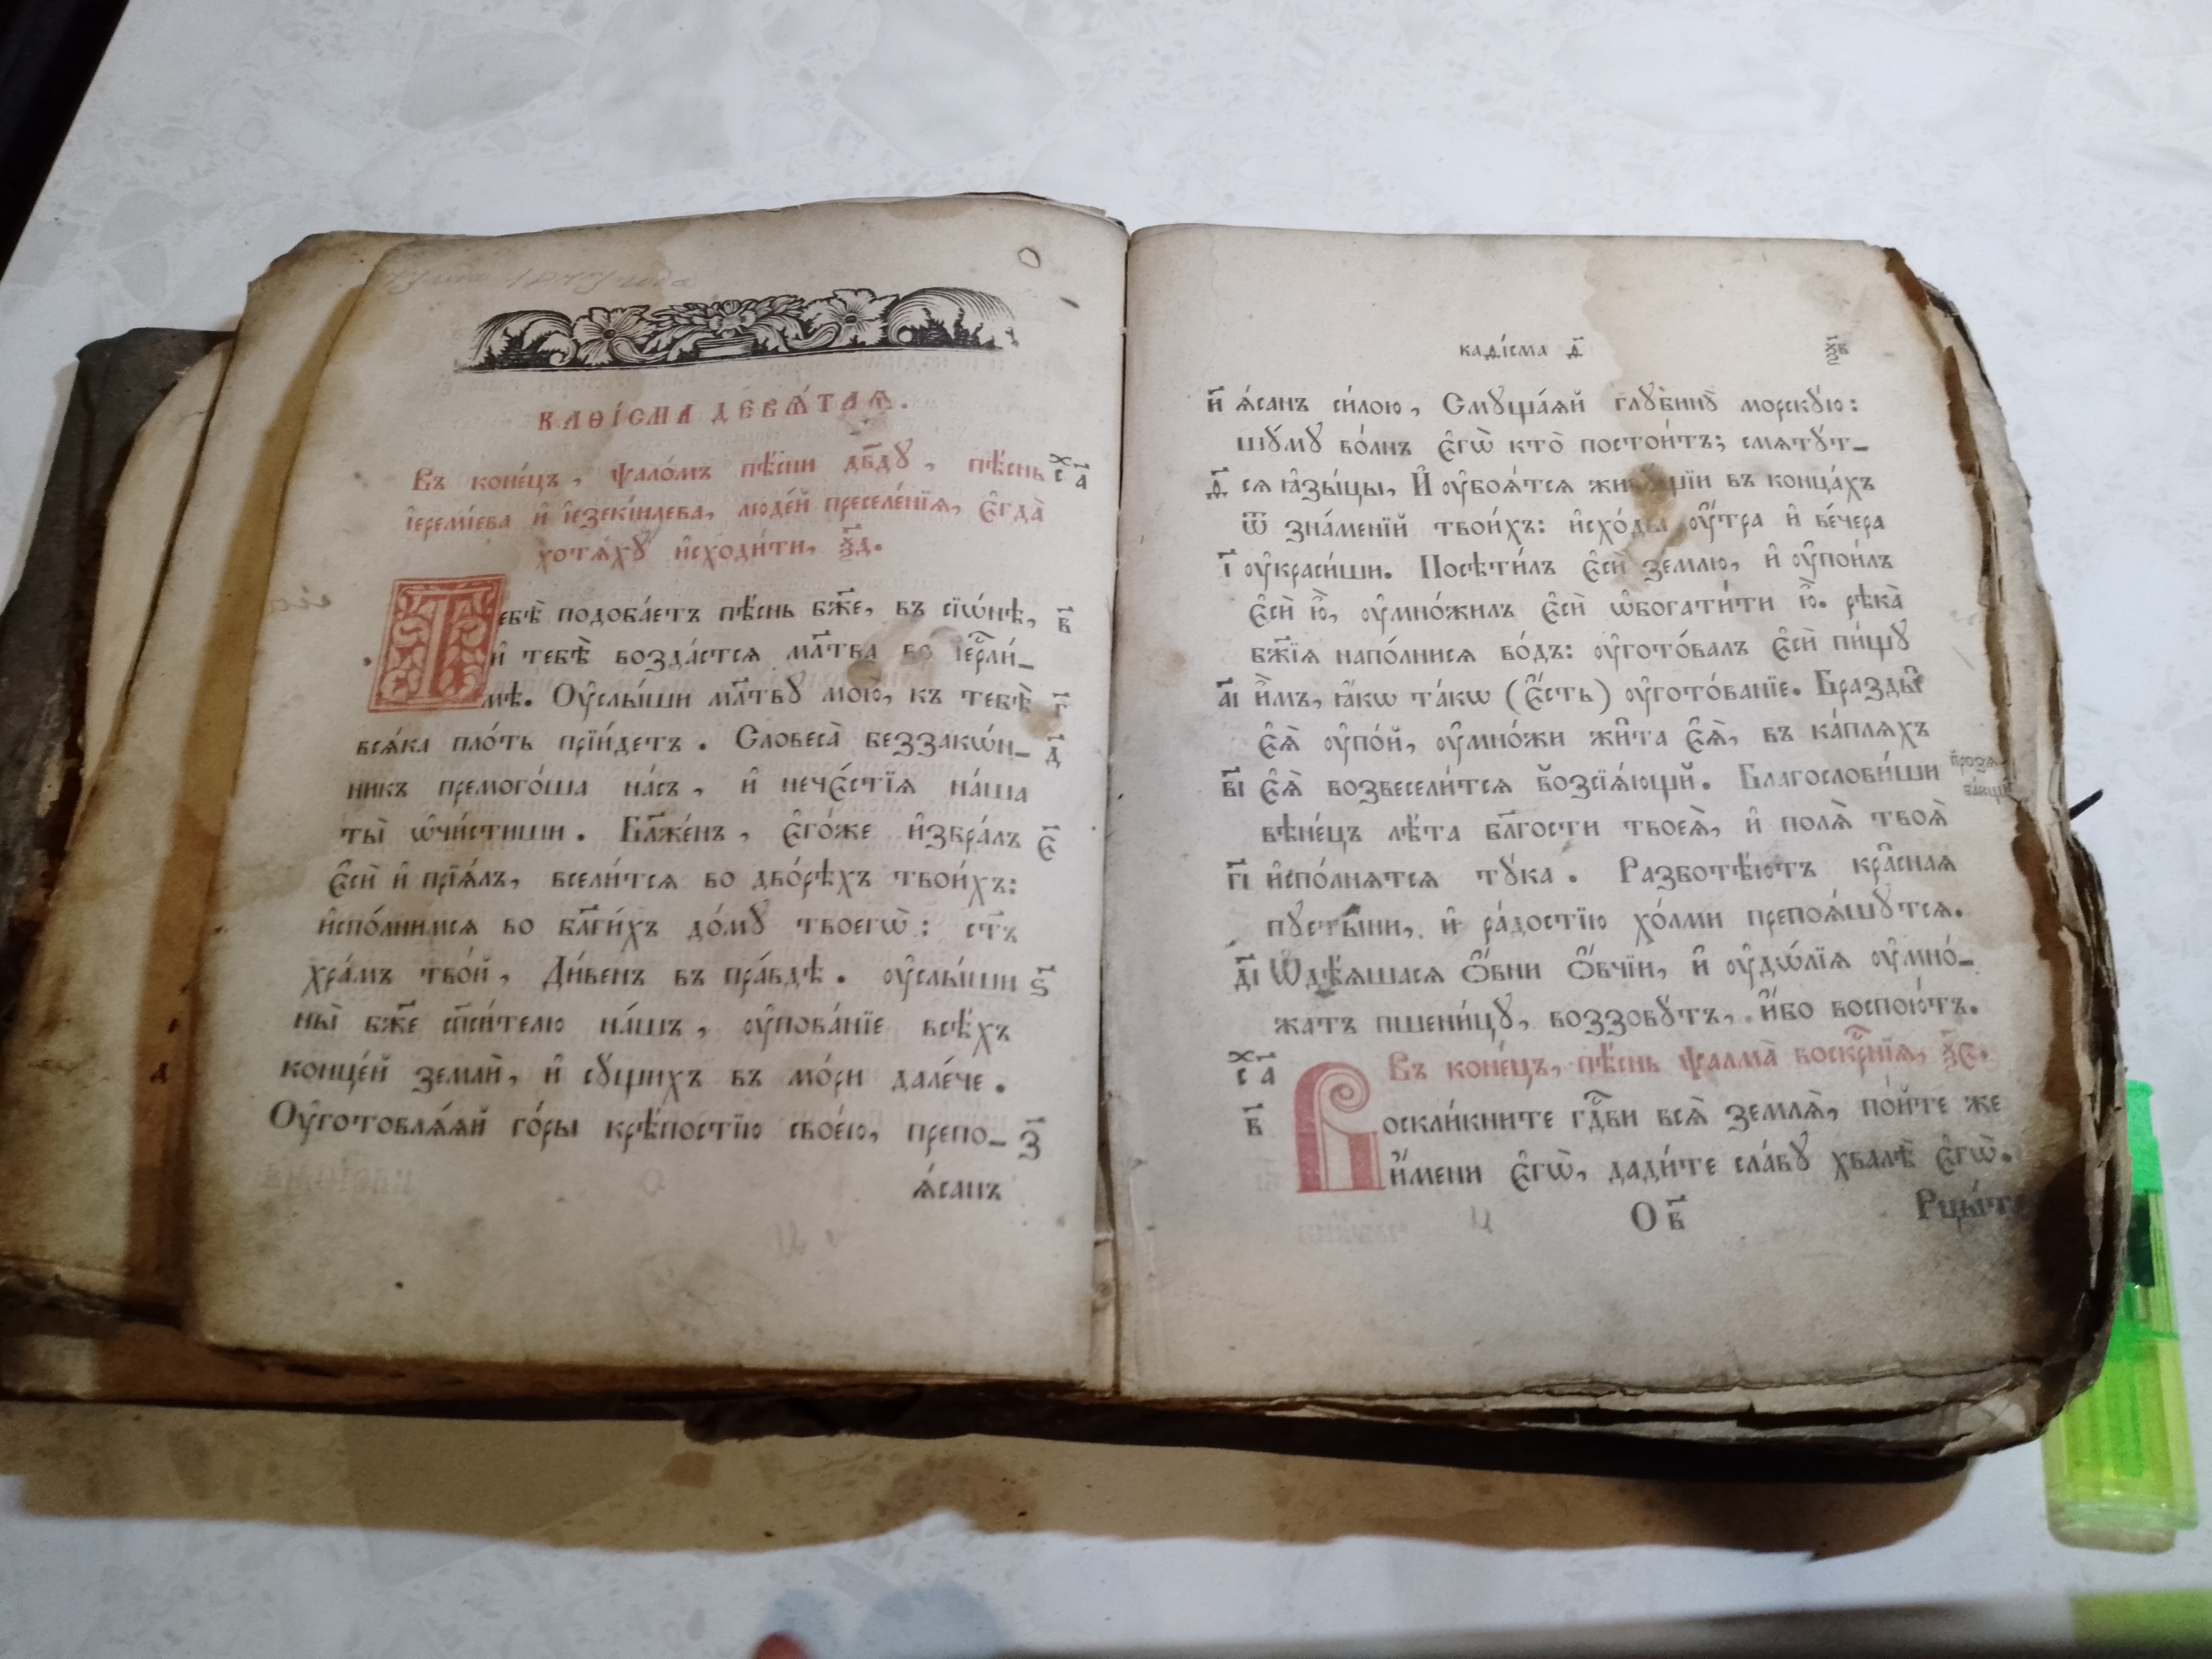 КАѲІ́СМА ДЕВѦ́ТАѦ.
Въ коне́цъ, ѱало́мъ пѣ́сни дв҃дꙋ, пѣ́снь
і҆еремі́ева и҆ і҆езекі́илева, люде́й преселе́нїѧ, є҆гда̀
хотѧ́хꙋ и҆сходи́ти, ѯ҃д.
Тебѣ̀ подоба́етъ пѣ́снь бж҃е, въ сїѡ́нѣ, в҃
и҆ тебѣ̀ возда́стсѧ мл҃тва во і҆ерⷭ҇ли́-
мѣ. Оу҆слы́ши мл҃твꙋ мою̀, къ тебѣ̀ г҃
всѧ́ка пло́ть прїи́детъ. Словеса̀ беззакѡ́н- д҃
никъ премого́ша на́съ, и҆ нече́стїѧ на́ша
ты̀ ѡ҆чи́стиши. Бл҃же́нъ, є҆го́же и҆збра́лъ є҃
є҆сѝ и҆ прїѧ́лъ, всели́тсѧ во дво́рѣхъ твои́хъ:
и҆спо́лнимсѧ во бл҃ги́хъ до́мꙋ твоегѡ̀: ст҃ъ
хра́мъ тво́й, Ди́венъ въ пра́вдѣ. оу҆слы́ши ѕ҃
ны̀ бж҃е сп҃си́телю на́шъ, оу҆пова́нїе всѣ́хъ
конце́й землѝ, и҆ сꙋ́щихъ въ мо́ри дале́че.
Оу҆готовлѧ́ѧй го́ры крѣ́постїю свое́ю, препо- з҃
ѧ́санъ
каѳі́сма ѳ҃ ѯ҃в
и҃ ѧ́санъ си́лою, Смꙋща́ѧй глꙋбинꙋ̀ морскꙋ́ю:
шꙋ́мꙋ во́лнъ є҆гѡ̀ кто̀ постои́тъ; смѧтꙋт-
ѳ҃ сѧ ꙗ҆зы́цы, И҆ оу҆боѧ́тсѧ живꙋ́щїи въ конца́хъ
ѿ зна́менїй твои́хъ: и҆схо́ды оу҆́тра и҆ ве́чера
і҃ оу҆краси́ши. Посѣти́лъ є҆сѝ зе́млю, и҆ оу҆пои́лъ
є҆сѝ ю҆̀, оу҆мно́жилъ є҆сѝ ѡ҆богати́ти ю҆̀. рѣка̀
бж҃їѧ напо́лнисѧ во́дъ: оу҆гото́валъ є҆сѝ пи́щꙋ
а҃і и҆̀мъ, ꙗ҆́кѡ та́кѡ (є҆́сть) оу҆гото́ванїе. Бразды̑
є҆ѧ̀ оу҆по́й, оу҆мно́жи жи̑та є҆ѧ̀, въ ка́плѧхъ
в҃і є҆ѧ̀ возвесели́тсѧ возсїѧ́ющи. Благослови́ши
вѣне́цъ лѣ́та бл҃гости твоеѧ̀, и҆ полѧ̑ твоѧ̑
г҃і и҆спо́лнѧтсѧ тꙋ́ка. Разботѣ́ютъ кра̑снаѧ
пꙋсты́ни, и҆ ра́достїю хо́лми препоѧ́шꙋтсѧ.
д҃і Ѡ҆дѣ́ѧшасѧ ѻ҆́вни ѻ҆́вчїи, и҆ оу҆дѡ́лїѧ оу҆мно́-
жатъ пшени́цꙋ, воззовꙋ́тъ, и҆́бо воспою́тъ.
Въ коне́цъ, пѣ́снь ѱалма̀ воскрⷭ҇нїѧ, ѯ҃є.
Воскли́кните гдⷭ҇ви всѧ̀ землѧ̀, по́йте же
в҃ и҆́мени є҆гѡ̀, дади́те сла́вꙋ хвалѣ̀ є҆гѡ̀.
О в҃